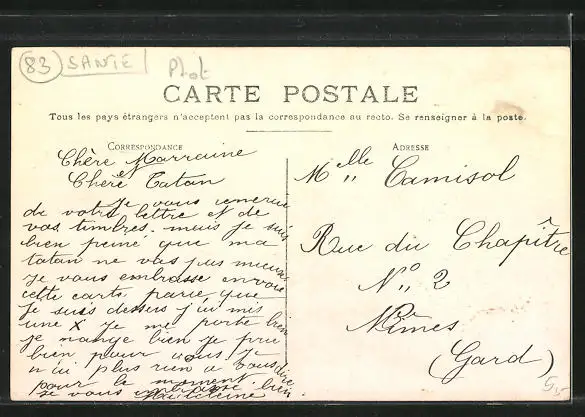 83 SANTE Phot
CARTE POSTALE
Tous les pays étrangers n'acceptent pas la correspondance au recto. Se renseigner à la poste.
CORRESPONDANCE
Chère Marraine
et
Chère Tatan
Je vous remercie
de votre lettre et de
vos timbres. mais je suis
bien peiné que ma
tatan ne vas pas mieux
Je vous embrasse envoie
cette carte parce que
je suis dessus j'ai mis
une X je me porte bien
je mange bien je prie
bien pour vous je
n'ai plus rien a vous dire
pour le moment
je vous embrasse bien
ADRESSE
Melle Camisol
Rue du Chapître
No 2
Nîmes
(Gard)